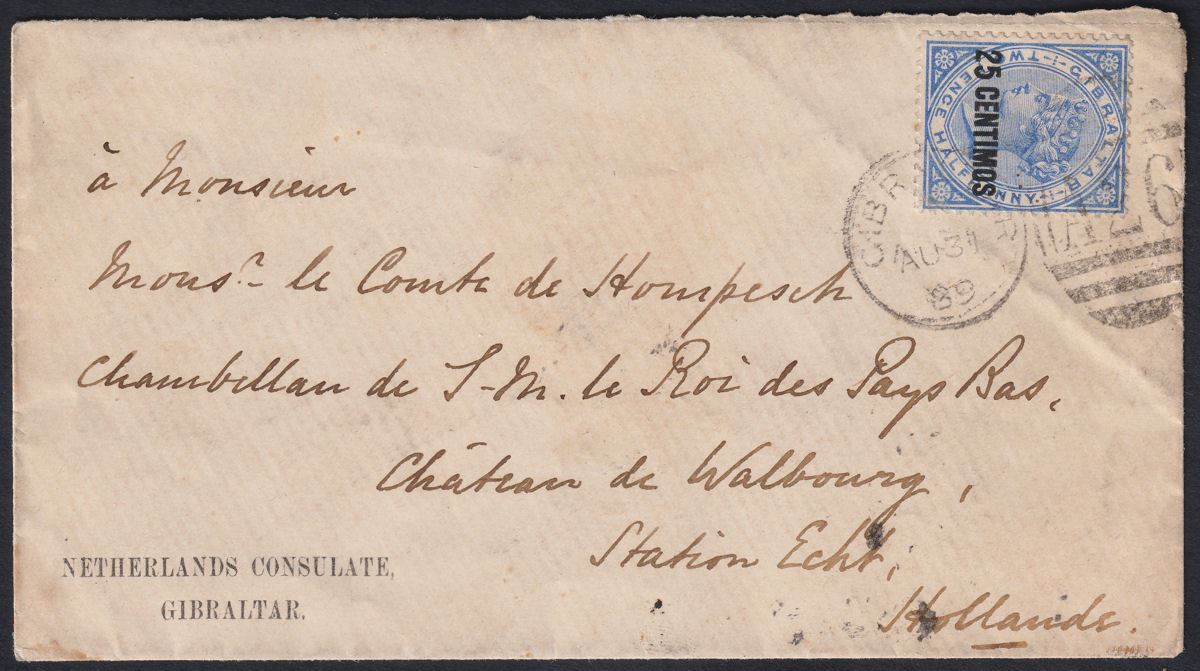 à Monsieur
Mons.r le Comte de Hompesch
Chambellan de S-M. le Roi des Pays Bas,
Château de Walbourg,
Station Echt,
Hollande.
NETHERLANDS CONSULATE,
GIBRALTAR.
GIBRALTAR
TWOPENCE HALFPENNY
25 CENTIMOS
GIBR R
AU 31
89
A26